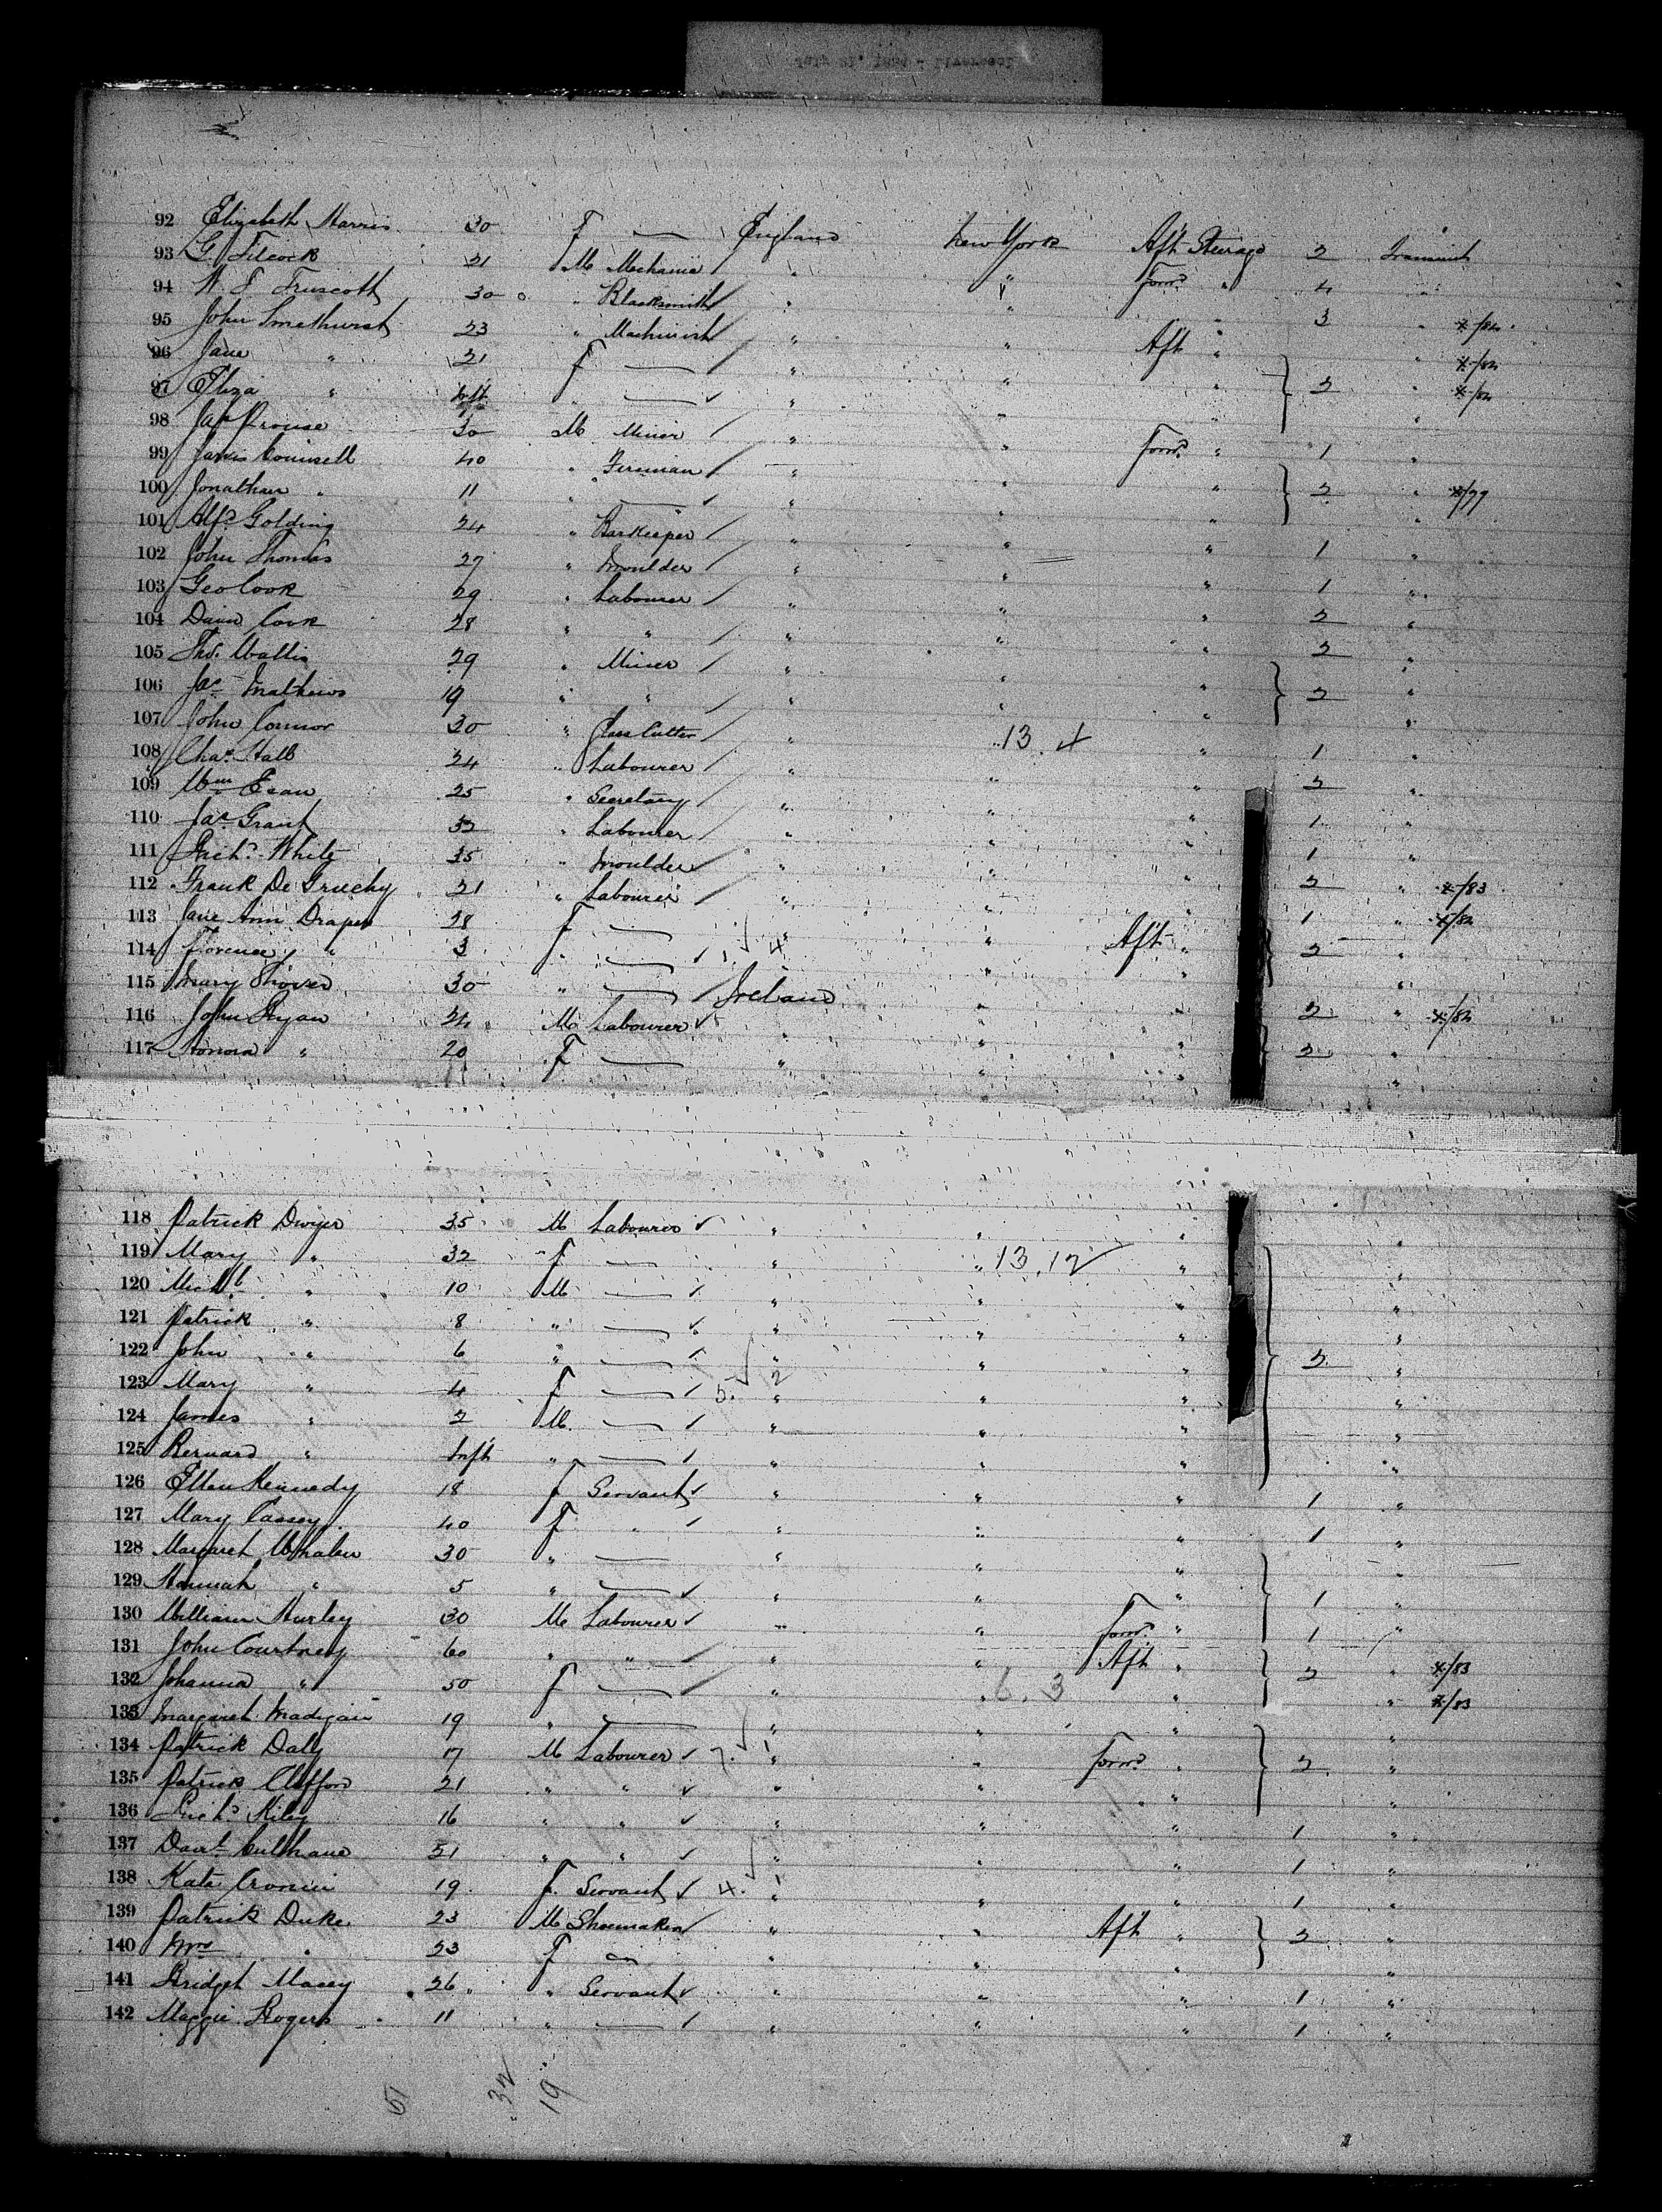 92 Elizabeth Harris 30 F — England New York Aft Steerage 2 Transient
93 G. Silcock 21 M Mechanic / " " Forwd " 4 "
94 W. S. Truscott 30 " Blacksmith / " " " 3 " */82
95 John Smethurst 23 " Machinist / " " Aft " " */82
96 Jane " 21 F — / " " " 2 " */82
97 Eliza " Inft " — ✓ " " " "
98 Jas Prouse 30 M Miner / " " Forwd " 1 "
99 40 " / " " " 2 " */79
100 Jonathan " 11 " — ✓ " " " "
101 Alfd Golding 24 " Barkeeper / " " " 1 "
102 John Thomas 27 " Moulder / " " " 1 "
103 Geo Cook 29 " Labourer / " " " 2 "
104 Cook 28 " " / " " " 2 "
105 Thos. Wallis 29 " Miner / " " " 2 "
106 Jas Mathews 19 " " / " " " "
107 John Connor 30 " Glass Cutter / " " 13.4 " 1 "
108 Chas. Hall 24 " Labourer / " " " 2 "
109 Wm 25 " Secretary / " " " 1 "
110 Jas Grant 32 " Labourer / " " " 1 "
111 Richd White 35 " Moulder ✓ " " " 2 " */83
112 Frank De Gruchy 21 " Labourer / " " " 1 " */82
113 Jane Ann Draper 28 F — " " Aft " 2 "
114 Florence " 3 " — ✓ 1. ✓ 4 " " "
115 Mary 30 " — / Ireland " " 2 " */82
116 John Ryan 24 M Labourer ✓ " " " 2 "
117 Honora " 20 F — " " " "
118 Patrick Dwyer 35 M Labourer ✓ " " " "
119 Mary " 32 F — " " 13.12 " "
120 Michl " 10 M — ✓ " " " "
121 Patrick " 8 " — ✓ " " " "
122 John " 6 " — ✓ " " " 2 "
123 Mary " 4 F — ✓ 5. ✓ 2 " " " "
124 James " 2 M. — ✓ " " " "
125 Bernard " Inft " — ✓ " " " "
126 Ellen Kennedy 18 F Servant ✓ " " " 1 "
127 Mary Cassey 40 F " ✓ " " " 1 "
128 Margaret Whalen 30 " — " " " "
129 Hannah " 5 " — ✓ " " " 1 "
130 William Hurley 30 M Labourer ✓ " " Forwd " 1 "
131 John Courtney 60 " " / " " Aft " 2 " */83
132 Johanna " 50 F — / " " 6.3 " " */83
133 Margaret Madigan 19 " — " " " "
134 Patrick Daly 17 M Labourer ✓ 7. ✓ 1 " " Forwd " 2 "
135 Patrick Clifford 21 " " ✓ " " " "
136 Richd Kiley 16 " " ✓ " " " 1 "
137 Danl Culhane 21 " " ✓ " " " 1 "
138 Kate Cronin 19 F. Servant ✓ 4. ✓ 1 " " " 1 "
139 Patrick Duke 23 M Shoemaker / " " Aft " 2 "
140 Mrs " 23 F — " " " "
141 Bridget Macey 26 " Servant ✓ " " " 1 "
142 Maggie Rogers 11 " — ✓ " " " 1 "
51 32 19